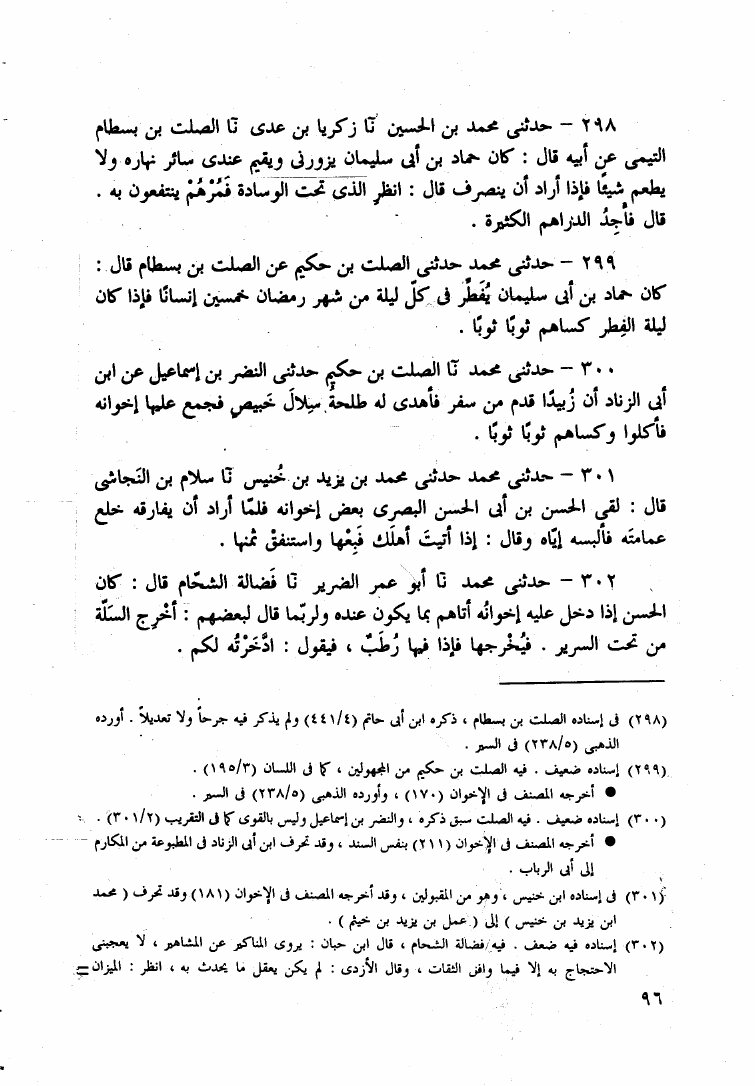 ٢٩٨ – حدثنى محمد بن الحسين نَا زكريا بن عدى نَا الصلت بن بسطام
التيمى عن أبيه قال : كان حماد بن أبى سليمان يزورنى ويقيم عندى سائر نهاره ولا
يطعم شيئًا فإذا أراد أن ينصرف قال : انظر الذى تحت الوسادة فَمُرْهُمْ ينتفعون به .
قال فأَجِدُ الدراهم الكثيرة .
٢٩٩ – حدثنى محمد حدثنى الصلت بن حكيم عن الصلت بن بسطام قال :
كان حماد بن أبى سليمان يُفَطِّر فى كلّ ليلة من شهر رمضان خمسين إنسانًا فإذا كان
ليلة الفِطر كساهم ثوبًا ثوبًا .
٣٠٠ – حدثنى محمد نَا الصلت بن حكيم حدثنى النضر بن إسماعيل عن ابن
أبى الزناد أن زُبيدًا قدم من سفر فأهدى له طلحةُ سِلالَ خَبيصٍ فجمع عليها إخوانه
فأكلوا وكساهم ثوبًا ثوبًا .
٣٠١ – حدثنى محمد حدثنى محمد بن يزيد بن خُنيس نَا سلام بن النَجاشى
قال : لقى الحسن بن أبى الحسن البصرى بعض إخوانه فلمّا أراد أن يفارقه خلع
عمامتَه فألبسه إيّاه وقال : إذا أتيتَ أهلَك فَبِعْها واستنفقْ ثمنها .
٣٠٢ – حدثنى محمد نَا أبو عمر الضرير نَا فَضالة الشحّام قال : كان
الحسن إذا دخل عليه إخوانُه أتاهم بما يكون عنده ولربّما قال لبعضهم : أخْرِج السَلّة
من تحت السرير . فيُخْرجها فإذا فيها رُطَبٌ ، فيقول : ادَّخَرْتُه لكم .
(٢٩٨) فى إسناده الصلت بن بسطام ، ذكره ابن أبى حاتم (٤٤١/٤) ولم يذكر فيه جرحاً ولا تعديلاً . أورده
الذهبى (٢٣٨/٥) فى السير .
(٢٩٩) إسناده ضعيف . فيه الصلت بن حكيم من المجهولين ، كما فى اللسان (١٩٥/٣) .
● أخرجه المصنف فى الإخوان (١٧٠) ، وأورده الذهبى (٢٣٨/٥) فى السير .
(٣٠٠) إسناده ضعيف . فيه الصلت سبق ذكره ، والنضر بن إسماعيل وليس بالقوى كما فى التقريب (٣٠١/٢) .
● أخرجه المصنف فى الإخوان (٢١١) بنفس السند ، وقد تحرف ابن أبى الزناد فى المطبوعة من المكارم
إلى أبى الرباب .
(٣٠١) فى إسناده ابن خنيس ، وهو من المقبولين ، وقد أخرجه المصنف فى الإخوان (١٨١) وقد تحرف ( محمد
ابن يزيد بن خنيس ) إلى ( عمل بن يزيد بن خيثم ) .
(٣٠٢) إسناده فيه ضعف . فيه فضالة الشحام ، قال ابن حبان : يروى المناكير عن المشاهير ، لا يعجبنى
الاحتجاج به إلا فيما وافق الثقات ، وقال الأزدى : لم يكن يعقل ما يحدث به ، انظر : الميزان =
٩٦